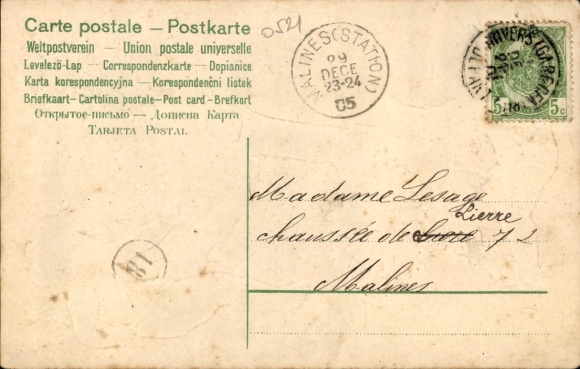 Carte postale — Postkarte
Weltpostverein — Union postale universelle
Levelező-Lap — Correspondenzkarte — Dopisnice
Karta korespondencyjna — Korespondenční listek
Briefkaart — Cartolina postale — Post card — Brefkort
Открытое письмо — Дописна Карта
Tarjeta Postal
0521
MALINES (STATION)
29
DECE
23-24
05
5c 5c
Madame Lesage
Lierre
chaussée de 72
Malines
18